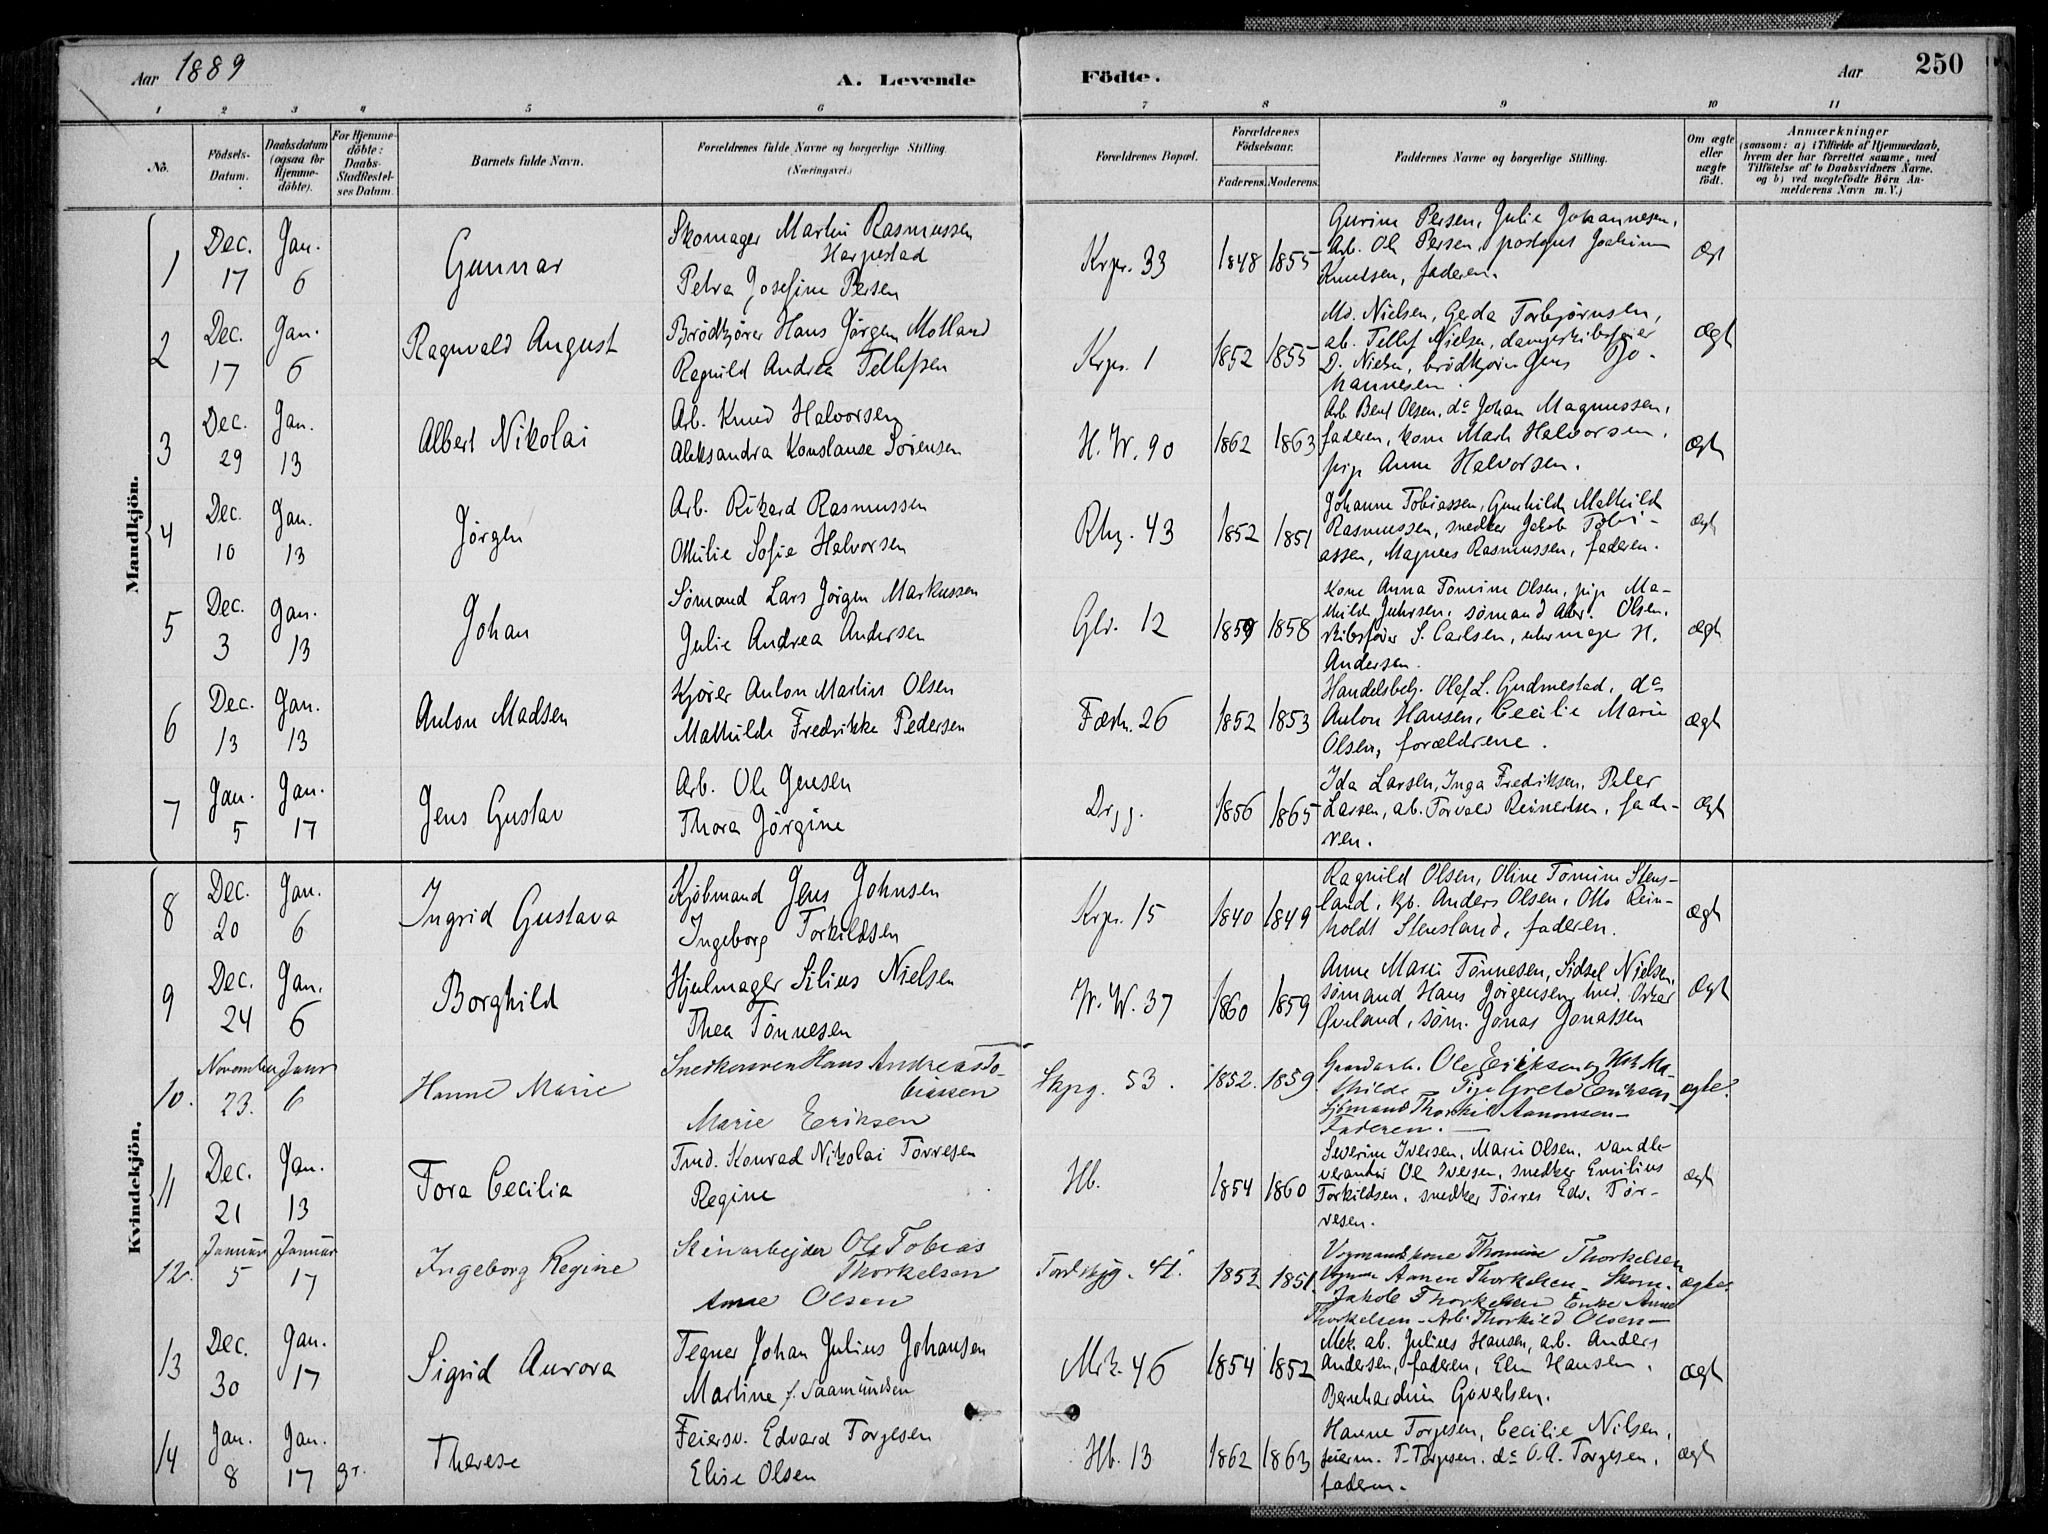 Aar 1889
A. Levende Födte.
Aar
250
1 2 3 4 5 6 7 8 9 10 11
No.
Födsels-Datum.
Daabsdatum (ogsaa for Hjemme-döbte).
For Hjemme-döbte: Daabs-Stadfæstelses Datum.
Barnets fulde Navn.
Forældrenes fulde Navne og borgerlige Stilling. (Næringsvei.)
Forældrenes Bopæl.
Forældrenes Födselsaar.
Faderens. Moderens.
Faddernes Navne og borgerlige Stilling.
Om ægte eller uægte födt.
Anmærkninger (saasom: a) i Tilfælde af Hjemmedaab, hvem der har forrettet samme, med Tilföielse af to Daabsvidners Navne, og b) ved uægtefödte Börn Anmelderens Navn m. V.)
Mandkjön.
1 Dec. 17 Jan. 6 Gunnar
Skomager Martin Rasmussen
Harpestad
Petra Josefine Persen
Krpr. 33 1848 1855
Gurine Persen, Julie Johannesen,
Arb. Ole Persen, Joakim
Knudsen, faderen.
ægt
2 Dec. 17 Jan. 6 Ragnvald August
Brödkjörer Hans Jörgen Molland
Ragnild Andrea Tellefsen
Krpr. 1 1852 1855
Md. Nielsen, Gerda Torbjörnsen,
ab. Tellef Nielsen, dampskibsfører
D. Nielsen, brödkjörer Jens Jo-
hannesen.
ægt
3 Dec. 29 Jan. 13 Albert Nikolai
Arb. Knud Halvorsen
Aleksandra Konstanse Sörensen
H. W. 90 1862 1863
Arb. Bent Olsen, do Johan Magnussen,
faderen, kone Marte Halvorsen,
pige Anne Halvorsen.
ægt
4 Dec. 10 Jan. 13 Jörgen
Arb. Rikard Rasmussen
Ottilie Sofie Halvorsen
43 1852 1851
Johanne Tobiassen, Gunhilde Mathilde
Rasmussen, snedker Jakob Tobi-
assen, Magnus Rasmussen, faderen.
ægt
5 Dec. 3 Jan. 13 Johan
Sömand Lars Jörgen Markussen
Julie Andrea Andersen
Glv. 12 1859 1858
kone Anna Tomine Olsen, pige Ma-
thilde Juhrsen, sömand Olsen,
skibsförer S. Carlsen, uhrmager H.
Andersen.
ægt
6 Dec. 13 Jan. 13 Anton Madsen
Kjörer Anton Martin Olsen
Mathilde Fredrikke Pedersen
Fæstn. 26 1852 1853
Handelsbetj. Olef L. Gudmestad, do
Anton Hansen, Cecilie Marie
Olsen, forældrene.
ægt
7 Jan. 5 Jan. 17 Jens Gustav
Arb. Ole Jensen
Thora Jörgine
1856 1865
Ida Larsen, Inga Fredriksen, Peter
Larsen, ab. Torvald Reinertsen, fade-
ren.
ægt
Kvindekjön.
8 Dec. 20 Jan. 6 Ingrid Gustava
Kjöbmand Jens Johnsen
Ingeborg Torkildsen
Krpr. 15 1840 1849
Ragnild Olsen, Oline Tomine Stens-
land, kjb. Anders Olsen, Otto Rein-
holdt Stensland, faderen.
ægt
9 Dec. 24 Jan. 6 Borghild
Hjulmager Silius Nielsen
Thea Tönnesen
W. W. 37 1860 1859
Anne Marie Tönnesen, Sidsel Nielsen,
sömand Hans Jörgensen, Oskar
Øveland, söm. Jonas Jonassen
ægt
10. November 23. Januar 6 Hanne Marie
Snedkersven Hans Andreas To-
biassen
Marie Eriksen
Skpg. 53. 1852. 1859
Ole Eriksen og Ma-
thilde – Pige Grete Eriksen –
Thorkil Aanonsen –
Faderen. –
ægte.
11 Dec. 21 Jan. 13 Tora Cecilia
Tmd. Konrad Nikolai Törresen
Regine
Hb. 1854 1860
Severine Iversen, Marie Olsen, vandle-
verandör Ole Iversen, snedker Emilius
Torkildsen, snedker Törres Edv. Tör-
resen.
ægt
12. Januar 5 Januar 17 Ingeborg Regine
Stenarbejder Ole Tobias
Thorkelsen
Anne Olsen
41. 1853 1851
Vognmandskone Thomine Thorkelsen
Aanen Thorkelsen – Skom.
Jakob Thorkelsen Enke Anne
Thorkelsen – Arb. Thorkild Olsen –
ægte.
13 Dec. 30 Jan. 17 Sigrid Aurora
Tegner Johan Julius Johansen
Martine f. Saamundsen
Mrk. 46 1854 1852
Mek. ab. Julius Hansen, arb. Anders
Andersen, faderen, Elen Hansen,
Bernhardine Govertsen.
ægt
14 Jan. 8 Jan. 17 Therese
Feiersv. Edvard Torgesen
Elise Olsen
Hb. 13 1862 1863
Hanne Torgesen, Cecilie Nilsen,
feierm. T. Torgesen, do O. A. Torgesen,
faderen.
ægt